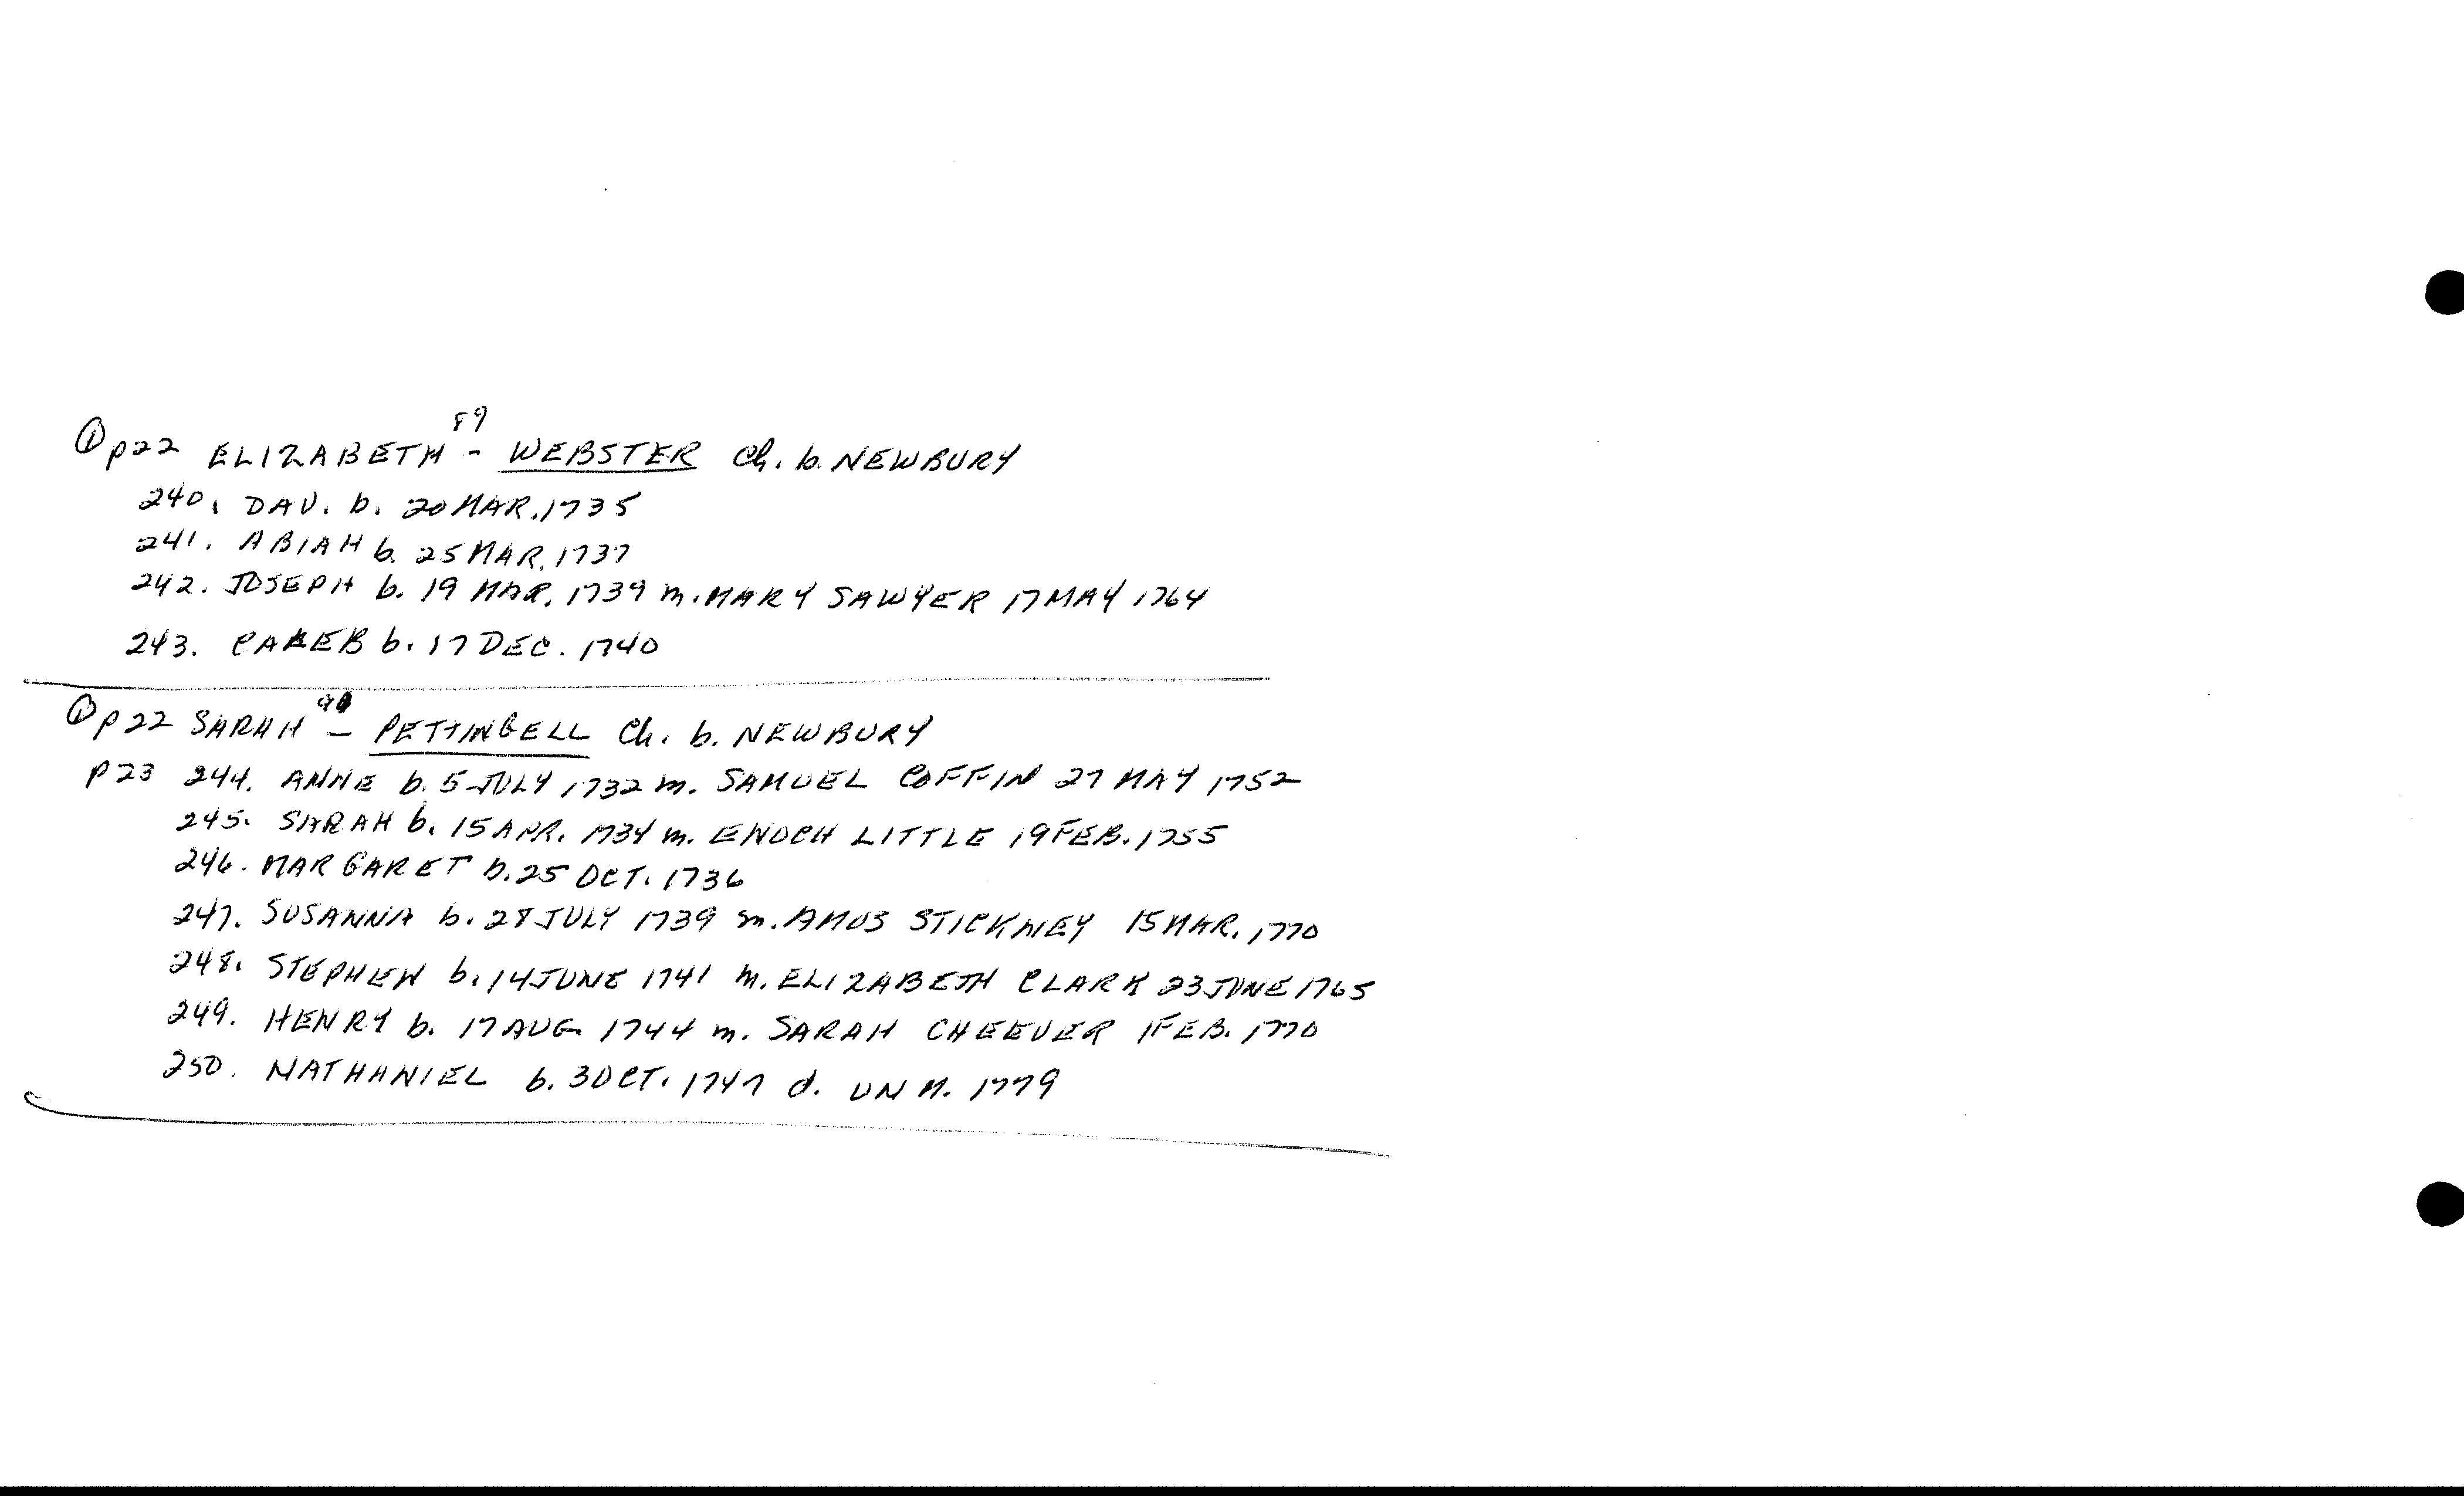 ① p22 ELIZABETH⁸⁹ - WEBSTER Ch. b. NEWBURY
240. DAV. b. 20 MAR. 1735
241. ABIAH b. 25 MAR. 1737
242. JOSEPH b. 19 MAR. 1739 m. MARY SAWYER 17 MAY 1764
243. CALEB b. 17 DEC. 1740
① p22 SARAH - PETTINGELL Ch. b. NEWBURY
p23 244. ANNE b. 5 JULY 1732 m. SAMUEL COFFIN 27 MAY 1752
245. SARAH b. 15 APR. 1734 m. ENOCH LITTLE 19 FEB. 1755
246. MARGARET b. 25 OCT. 1736
247. SUSANNA b. 28 JULY 1739 m. AMOS STICKNEY 15 MAR. 1770
248. STEPHEN b. 14 JUNE 1741 m. ELIZABETH CLARK 23 JUNE 1765
249. HENRY b. 17 AUG. 1744 m. SARAH CHEEVER 1 FEB. 1770
250. NATHANIEL b. 3 OCT. 1747 d. UNM. 1779